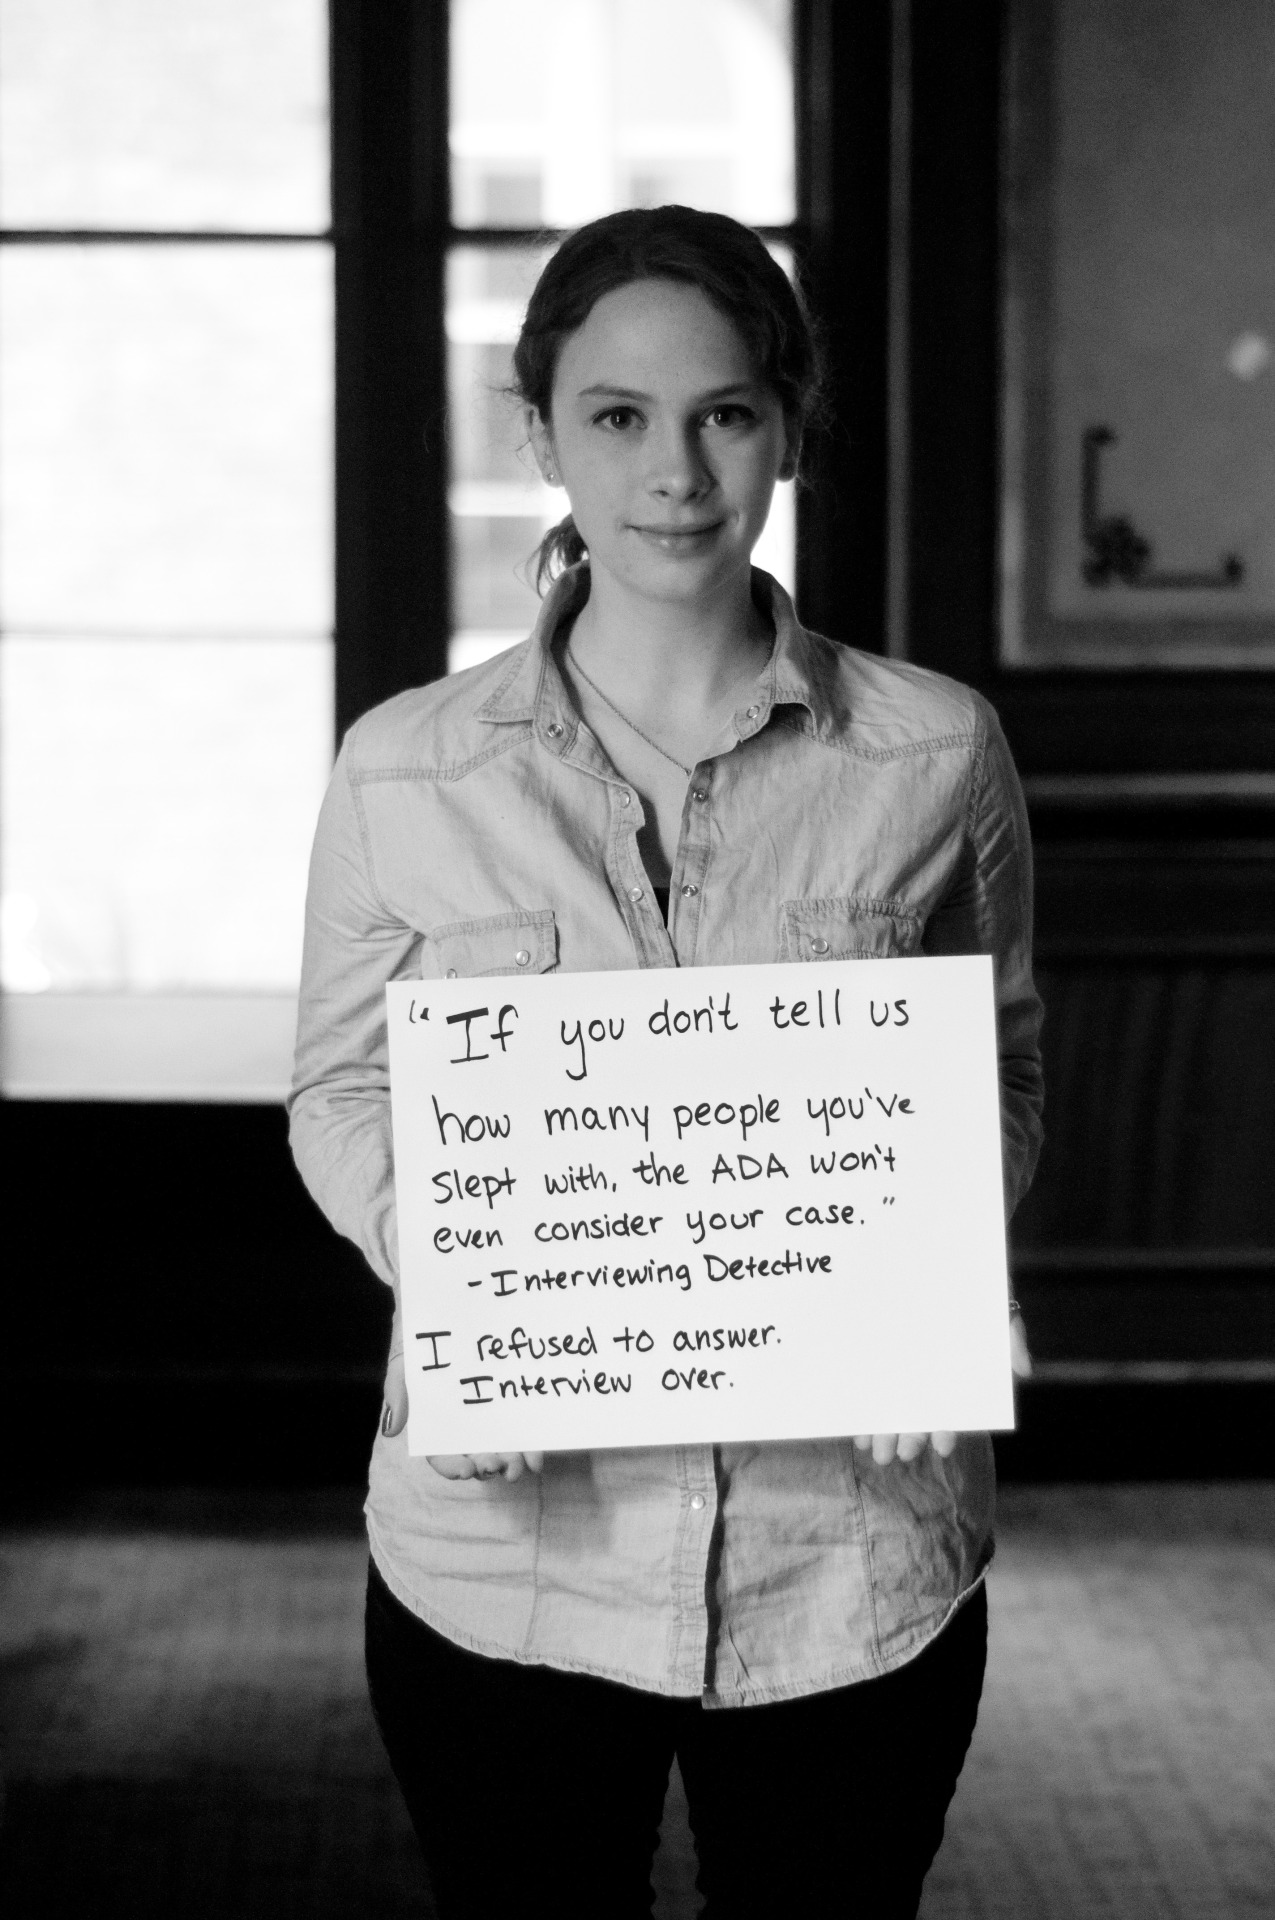 "If you don't tell us
how many people you've
slept with, the ADA won't
even consider your case."
- Interviewing Detective
I refused to answer.
Interview over.